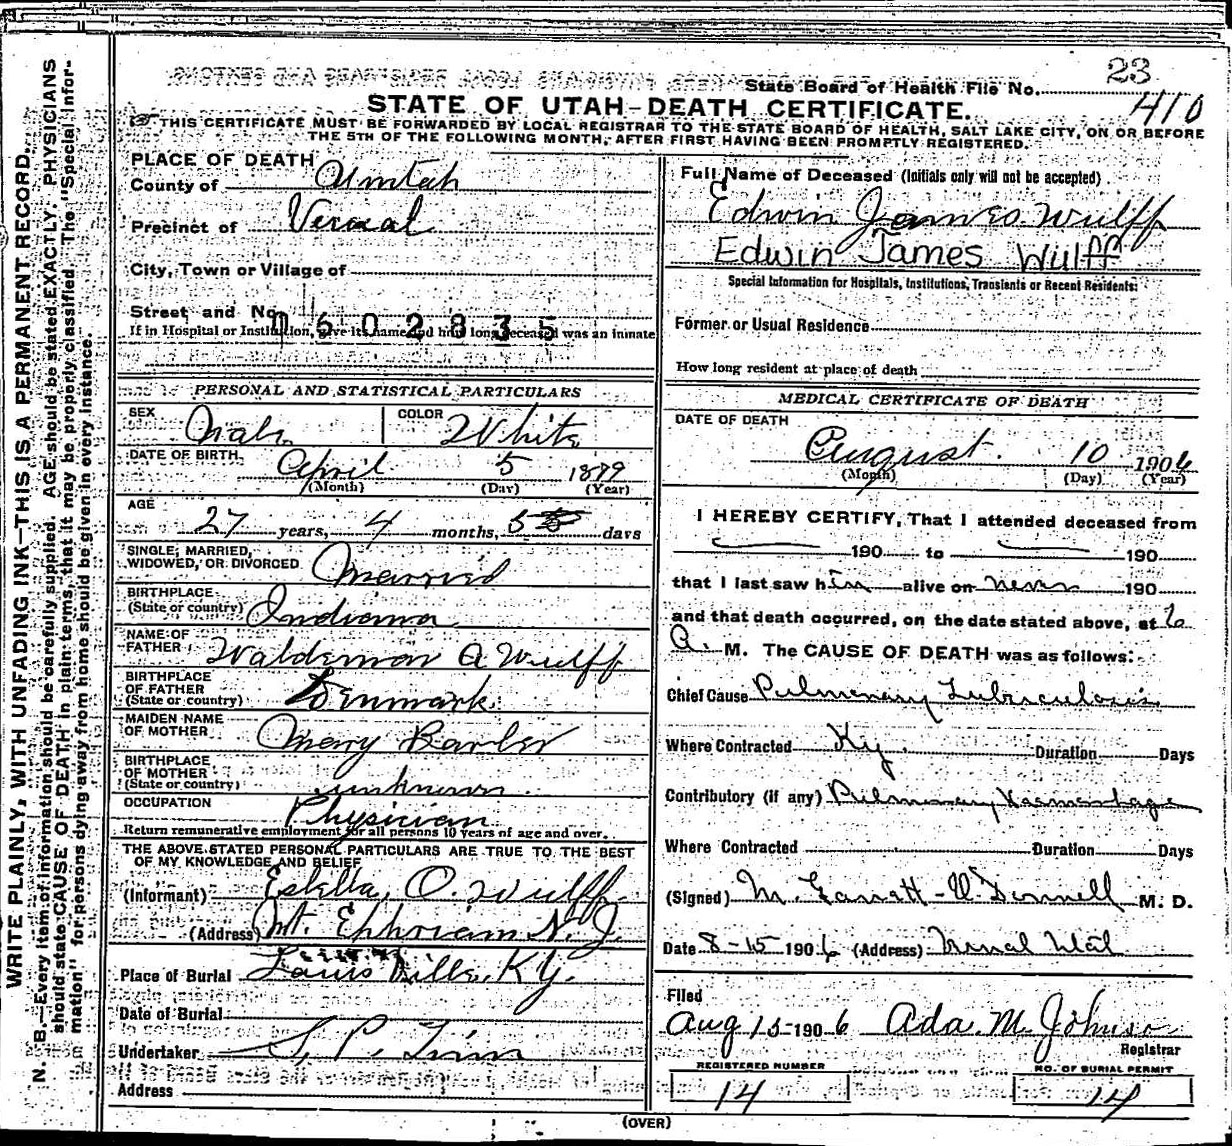 State Board of Health File No. 23
410
STATE OF UTAH—DEATH CERTIFICATE.
THIS CERTIFICATE MUST BE FORWARDED BY LOCAL REGISTRAR TO THE STATE BOARD OF HEALTH, SALT LAKE CITY, ON OR BEFORE
THE 5TH OF THE FOLLOWING MONTH, AFTER FIRST HAVING BEEN PROMPTLY REGISTERED.
WRITE PLAINLY, WITH UNFADING INK—THIS IS A PERMANENT RECORD.
N. B.—Every item of information should be carefully supplied. AGE should be stated EXACTLY. PHYSICIANS
should state CAUSE OF DEATH in plain terms, that it may be properly classified. The "Special Infor-
mation" for persons dying away from home should be given in every instance.
PLACE OF DEATH
County of Uintah
Precinct of Vernal
City, Town or Village of
Street and No.
1602835
If in Hospital or Institution, give its name and how long deceased was an inmate
PERSONAL AND STATISTICAL PARTICULARS
SEX Male COLOR White
DATE OF BIRTH April 5 1879
(Month) (Day) (Year)
AGE
27 years, 4 months, 5 days
SINGLE, MARRIED,
WIDOWED, OR DIVORCED Married
BIRTHPLACE
(State or country) Indiana
NAME OF
FATHER Waldemar A Wulff
BIRTHPLACE
OF FATHER
(State or country) Denmark
MAIDEN NAME
OF MOTHER Mary Barber
BIRTHPLACE
OF MOTHER
(State or country) unknown
OCCUPATION Physician
Return remunerative employment for all persons 10 years of age and over.
THE ABOVE STATED PERSONAL PARTICULARS ARE TRUE TO THE BEST
OF MY KNOWLEDGE AND BELIEF
(Informant) Estella O. Wulff
(Address) Mt. Ephoriam N. J.
Place of Burial Louis Ville, KY.
Date of Burial
Undertaker S. P.
Address
Full Name of Deceased (Initials only will not be accepted)
Edwin James Wulff
Edwin James Wulff
Special Information for Hospitals, Institutions, Transients or Recent Residents:
Former or Usual Residence
How long resident at place of death
MEDICAL CERTIFICATE OF DEATH
DATE OF DEATH
August 10 1906
(Month) (Day) (Year)
I HEREBY CERTIFY, That I attended deceased from
190 to 190
that I last saw him alive on never 190
and that death occurred, on the date stated above, at 6
A. M. The CAUSE OF DEATH was as follows:
Chief Cause Pulmonary Tuberculosis
Where Contracted Ky. Duration Days
Contributory (if any) Pulmonary Haemorrhage
Where Contracted Duration Days
(Signed) M. Garrett-O'Donnell M. D.
Date 8-15 1906 (Address) Vernal Utah
Filed
Aug 15 1906 Ada M Johnson
Registrar
REGISTERED NUMBER
14
NO. OF BURIAL PERMIT
14
(OVER)